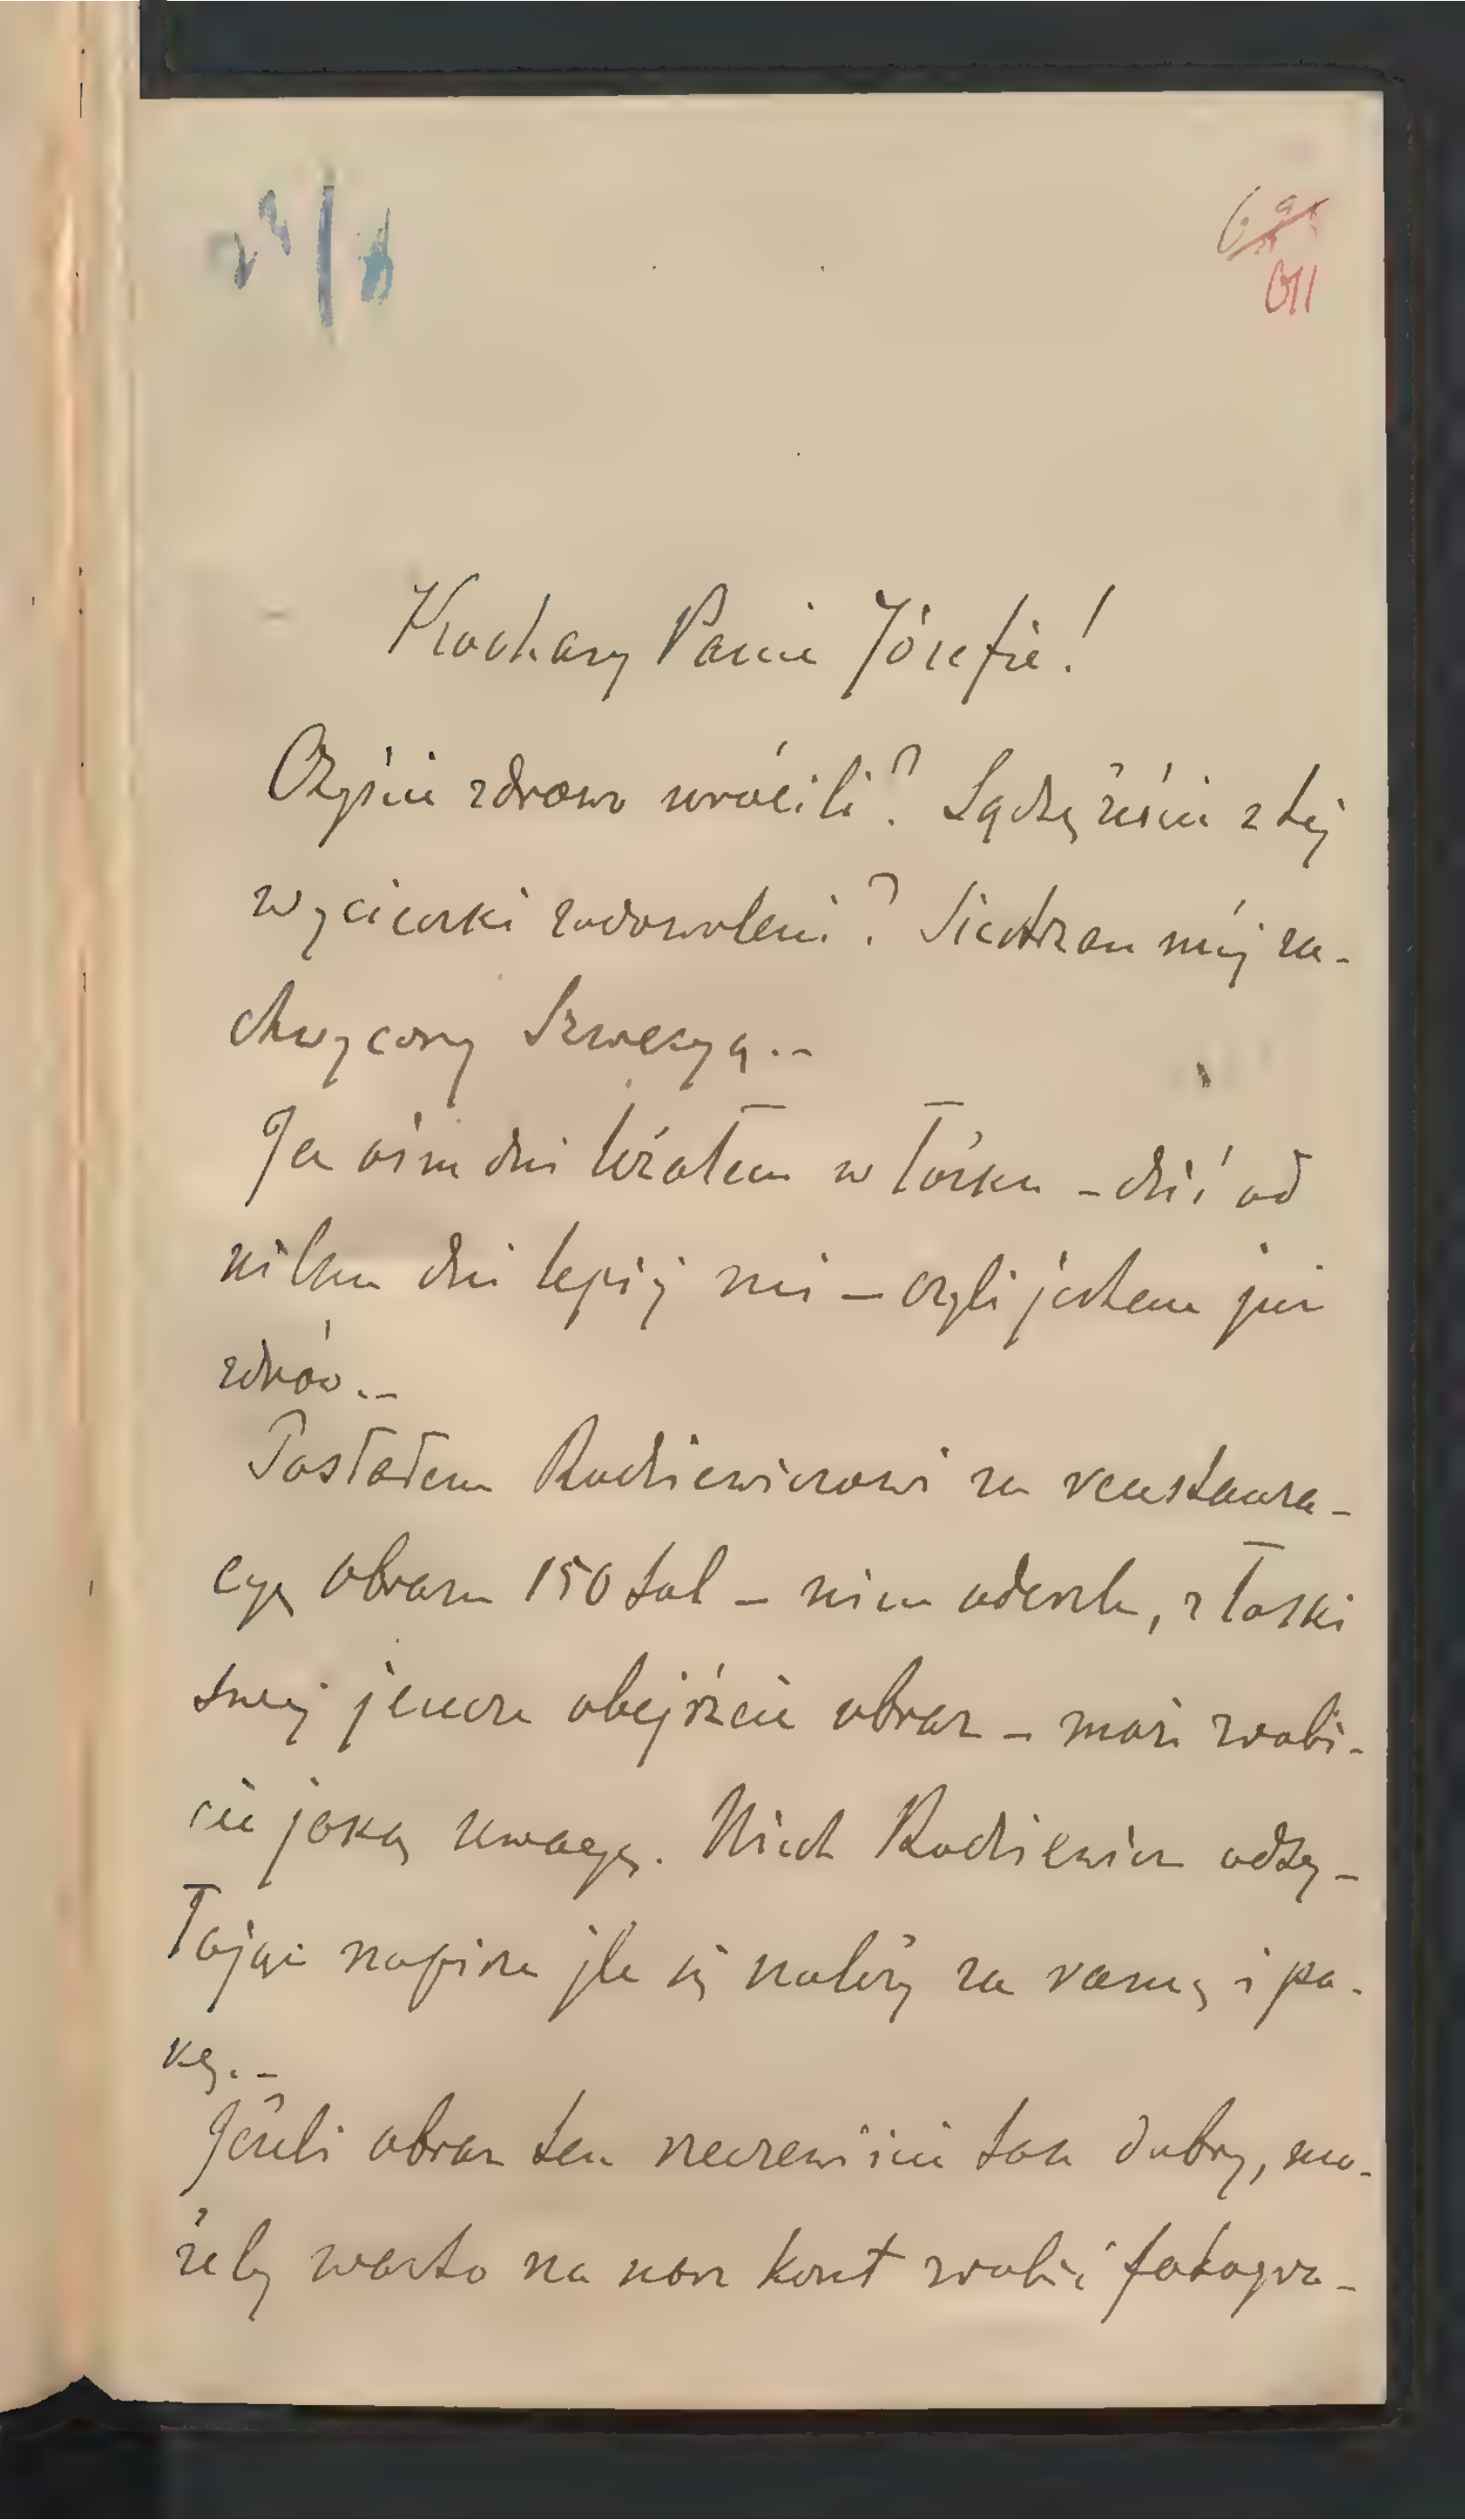 Kochany Panie Józefie!
Czyście zdrowo wrócili? Sądzę żeście z tej
wycieczki zadowoleni? Siostrzan mój za-
chwycony Szwecyą..-
Ja ośm dni leżałem w łóżku - dziś od
kilku dni lepiej mi - czyli jestem już
zdrów..-
Posłałem Radziewiczowi za restaura-
cyę obrazu 150 tal - nim odeszle, z łaski
swej jeszcze obejrzcie obraz - może zrobi-
cie jaką uwagę. Niech Radziewicz odsy-
łając napisze jle się należy za ramę i pa-
kę..-
Jeżeli obraz ten rzeczewiście tak dobry, mo-
żeby warto na nasz koszt zrobić fotogra-